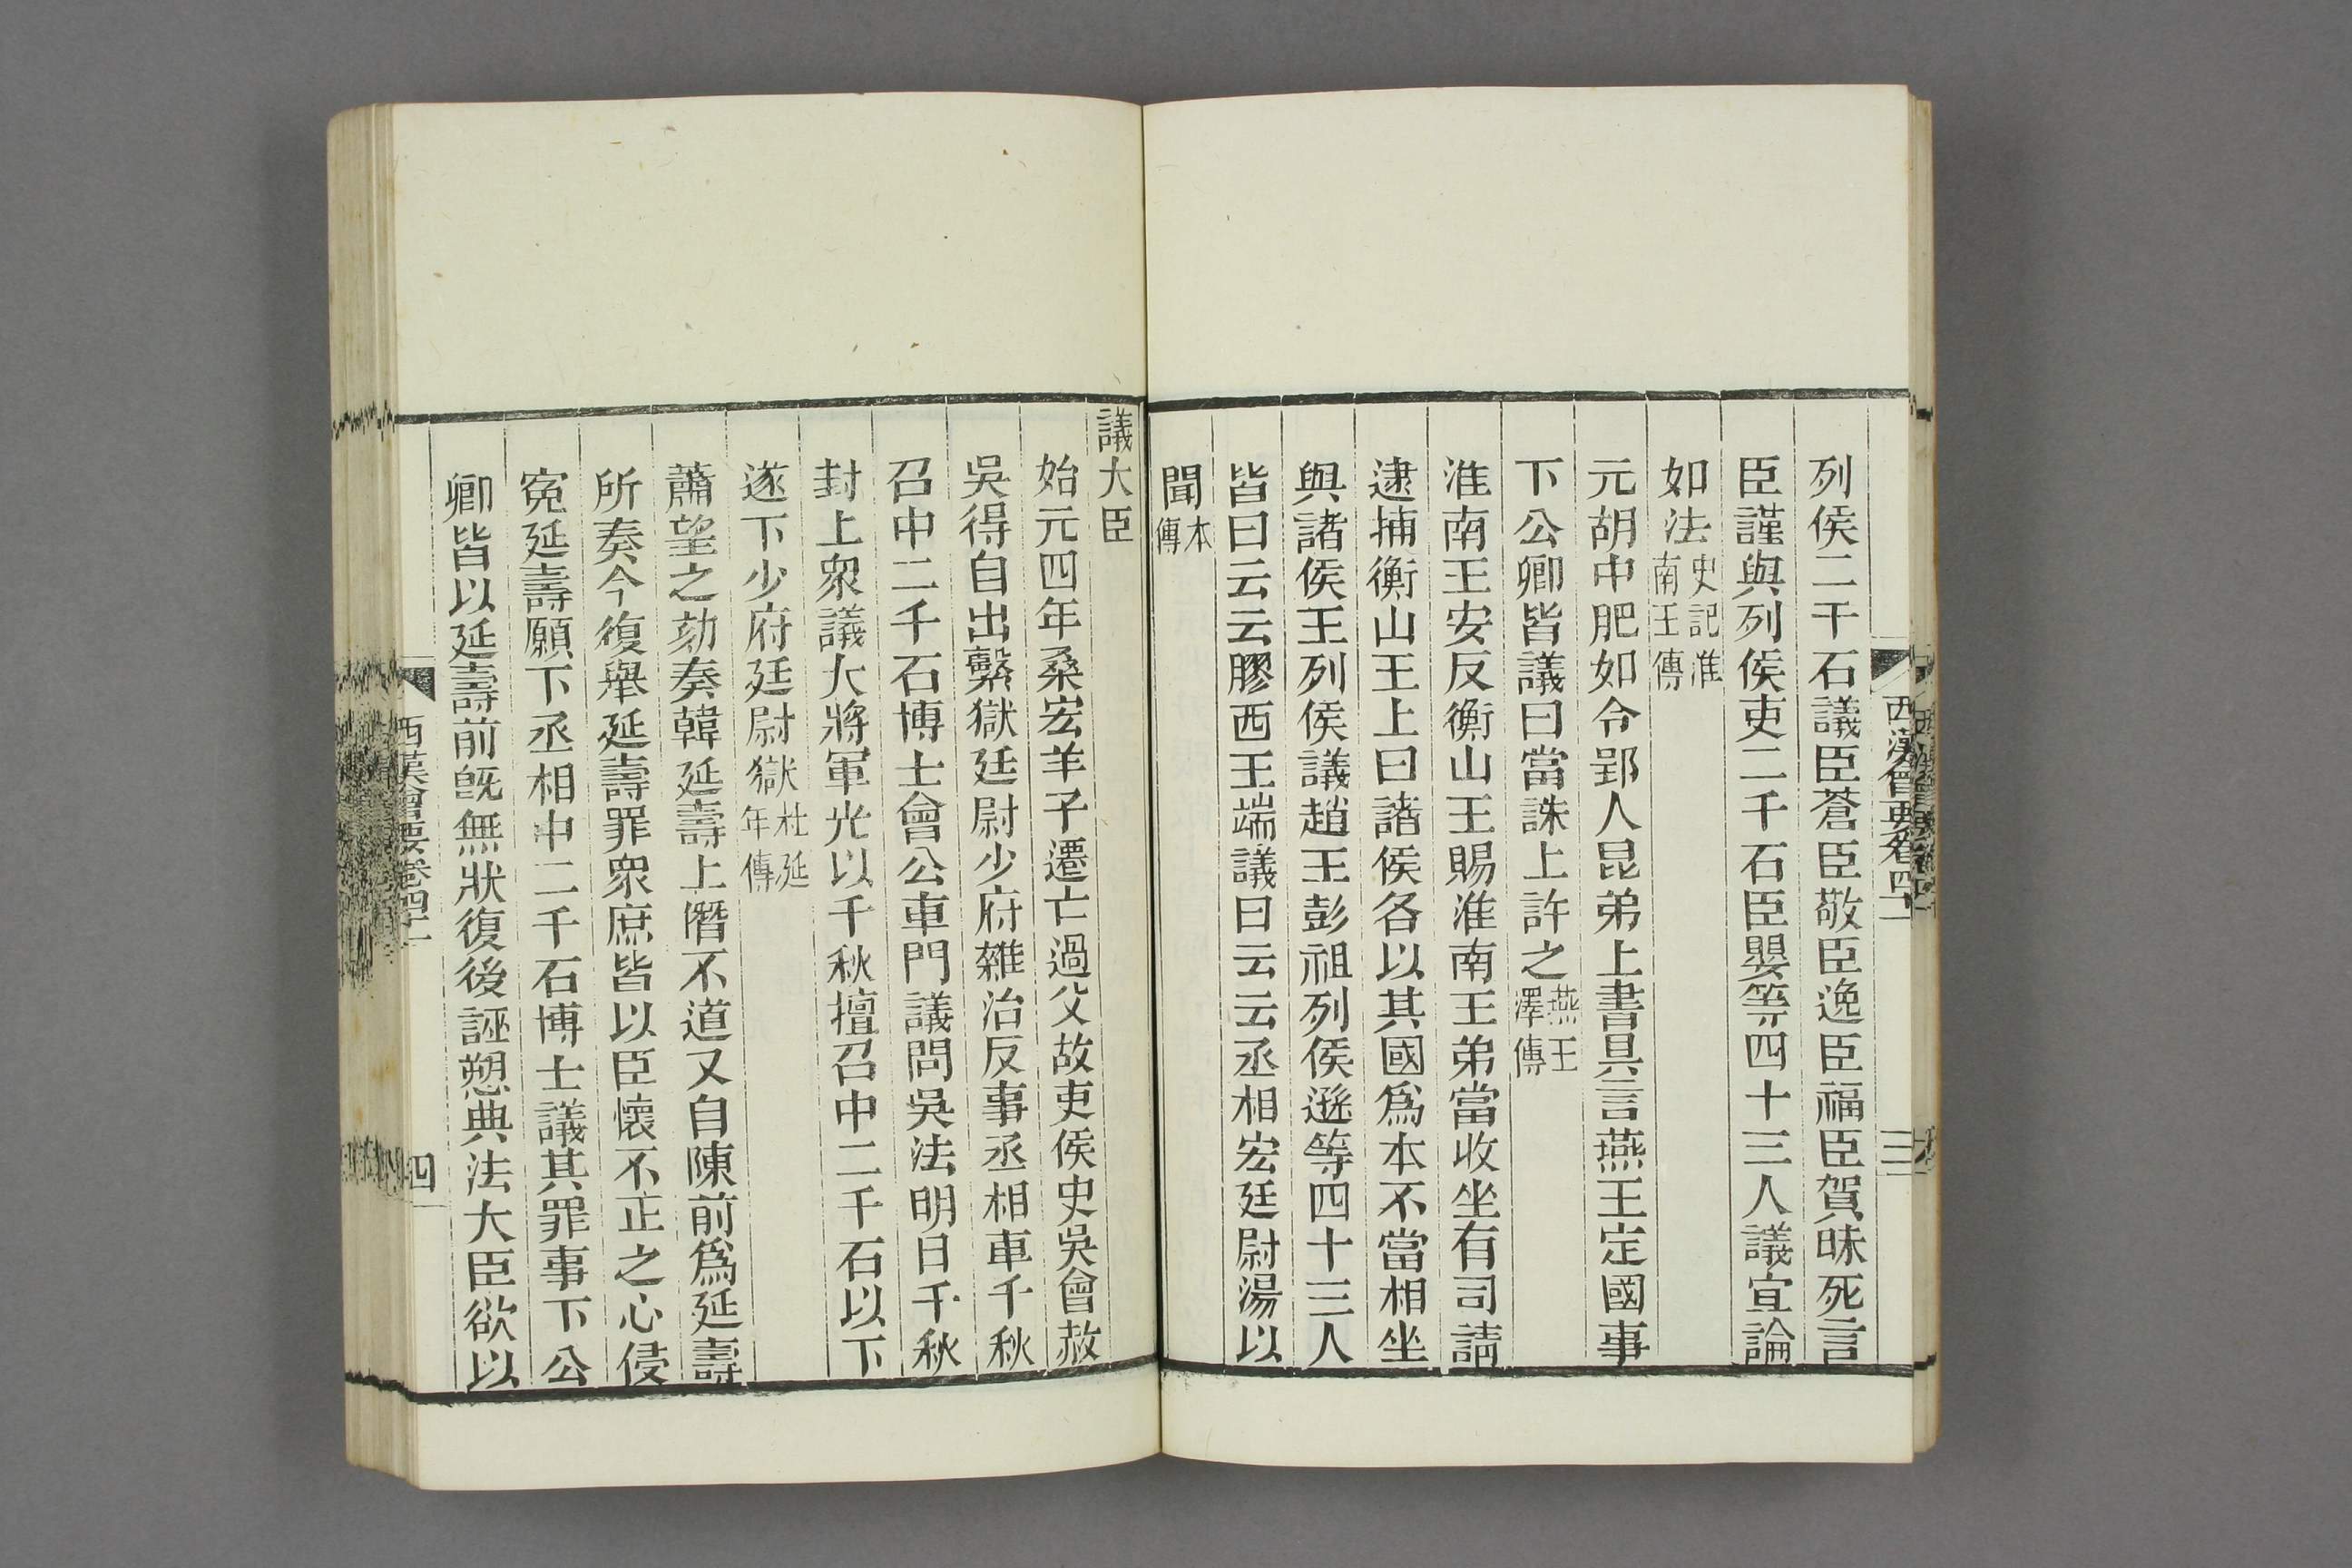 列侯二千石議臣蒼臣敬臣逸臣福臣賀昧死言
臣謹與列侯吏二千石臣嬰等四十三人議宜論
如法史記淮南王傳
元朔中肥如令郢人昆弟上書具言燕王定國事
下公卿皆議曰當誅上許之燕王澤傳
淮南王安反衡山王賜淮南王弟當收坐有司請
逮捕衡山王上曰諸侯各以其國爲本不當相坐
與諸侯王列侯議趙王彭祖列侯遜等四十三人
皆曰云云膠西王端議曰云云丞相宏廷尉湯以
聞本傳
西漢會要卷四十一
三
議大臣
始元四年桑宏羊子遷亡過父故吏侯史吳會赦
吳得自出繫獄廷尉少府雜治反事丞相車千秋
召中二千石博士會公車門議問吳法明日千秋
封上衆議大將軍光以千秋擅召中二千石以下
遂下少府廷尉獄杜延年傳
蕭望之劾奏韓延壽上僭不道又自陳前爲延壽
所奏今復舉延壽罪衆庶皆以臣懷不正之心侵
寃延壽願下丞相中二千石博士議其罪事下公
卿皆以延壽前旣無狀復後誣愬典法大臣欲以
西漢會要卷四十一
四